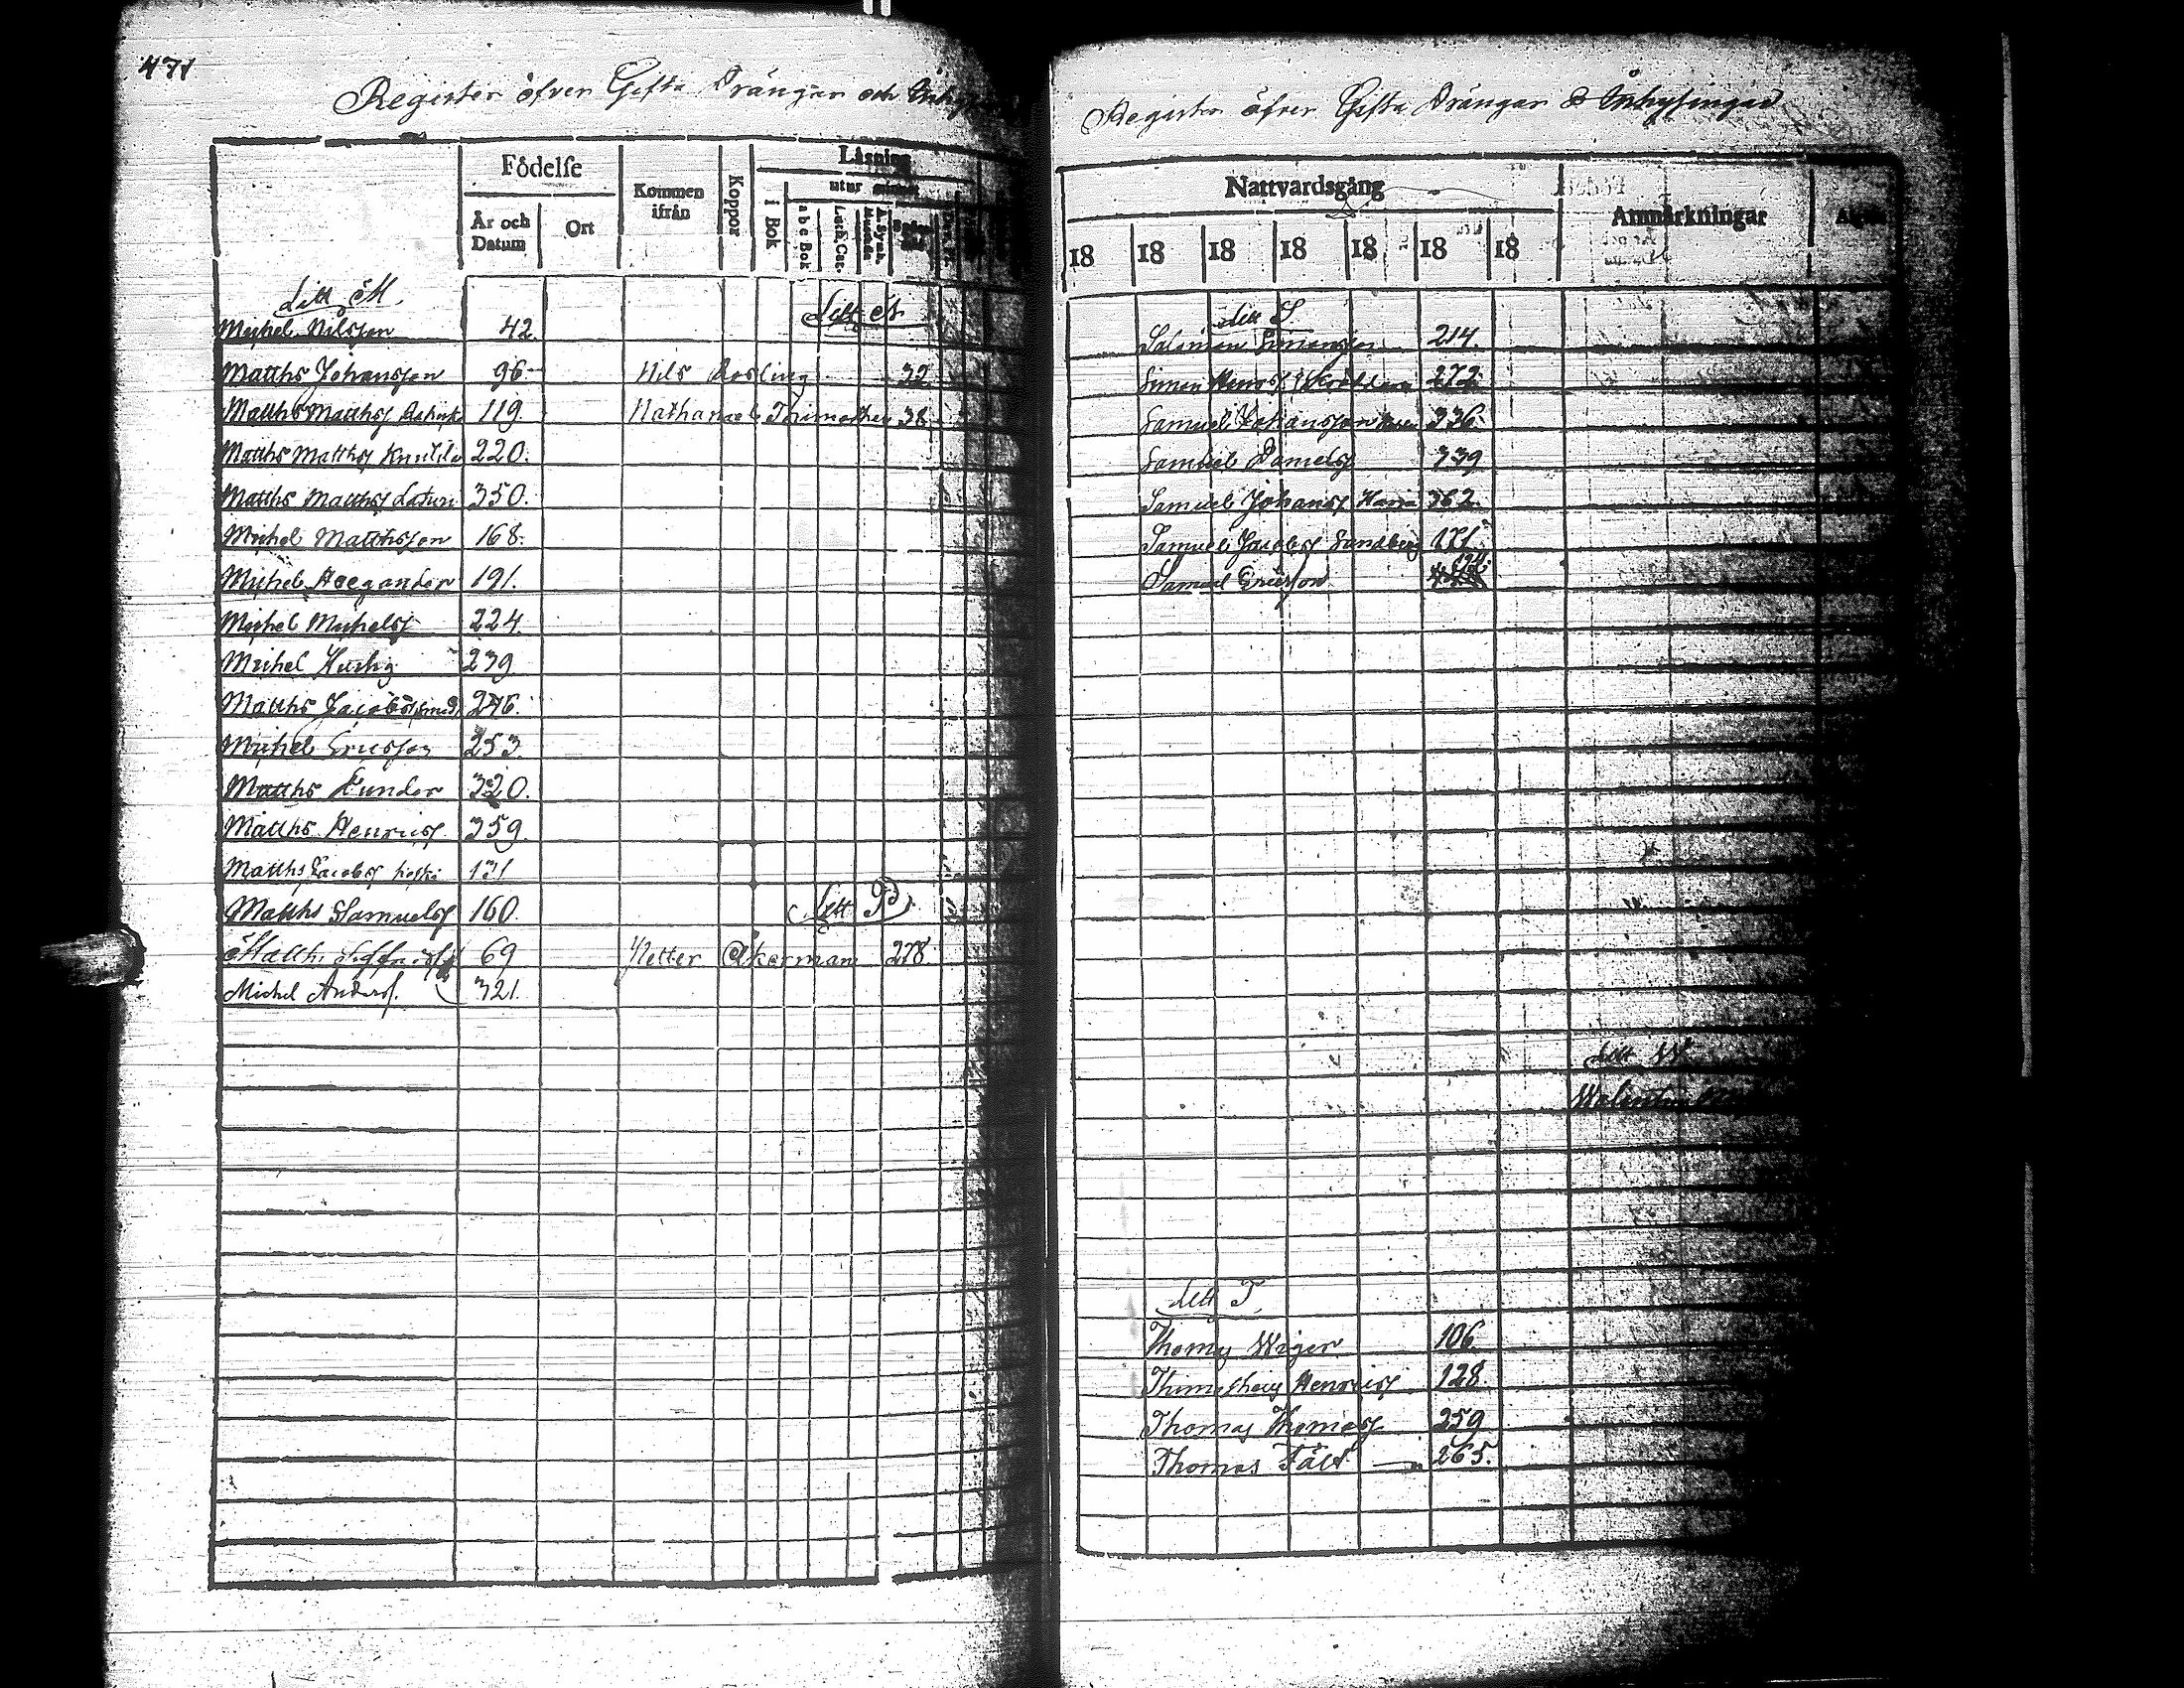 471
Register öfver Gifta Drängar och
Födelse
År och Datum
Ort
Kommen ifrån
Koppor
Läsning
i Bok
utur
a b c Bok
Litt M.
Michel Nilsson 42.
Matths Johansson 96
Matths Matthss 119.
Matths Matthss 220.
Matths Matthss 350.
Michel Matthsson 168.
Michel 191.
Michel Michelss 224.
Michel 239
Matths Jacobss 246.
Michel Ericsson 253.
Matths 320.
Matths Henricss 359.
Matths Jacobss 131
Matths Samuelss 160.
Matths 69
Michel Anderss. 321.
Litt N.
Nils Rosling 32
Nathanael Thimotheus 38
Litt P.
Petter Åkerman 278.
Register öfver Gifta Drängar & Inhysingar
Nattvardsgång
18 18 18 18 18 18 18
Anmärkningar
Litt S
Salomon Simonsson 214.
Simon 272.
Samuel Johansson 336.
Samuel Danielss 339
Samuel Johanss 362.
Samuel Jacobss Sundberg 171.
Samuel Ericsson
Litt W
Walentin
Litt T.
Thomas Wiger 106.
Thimotheus Henricss 128.
Thomas Thomass 259
Thomas Fält 265.